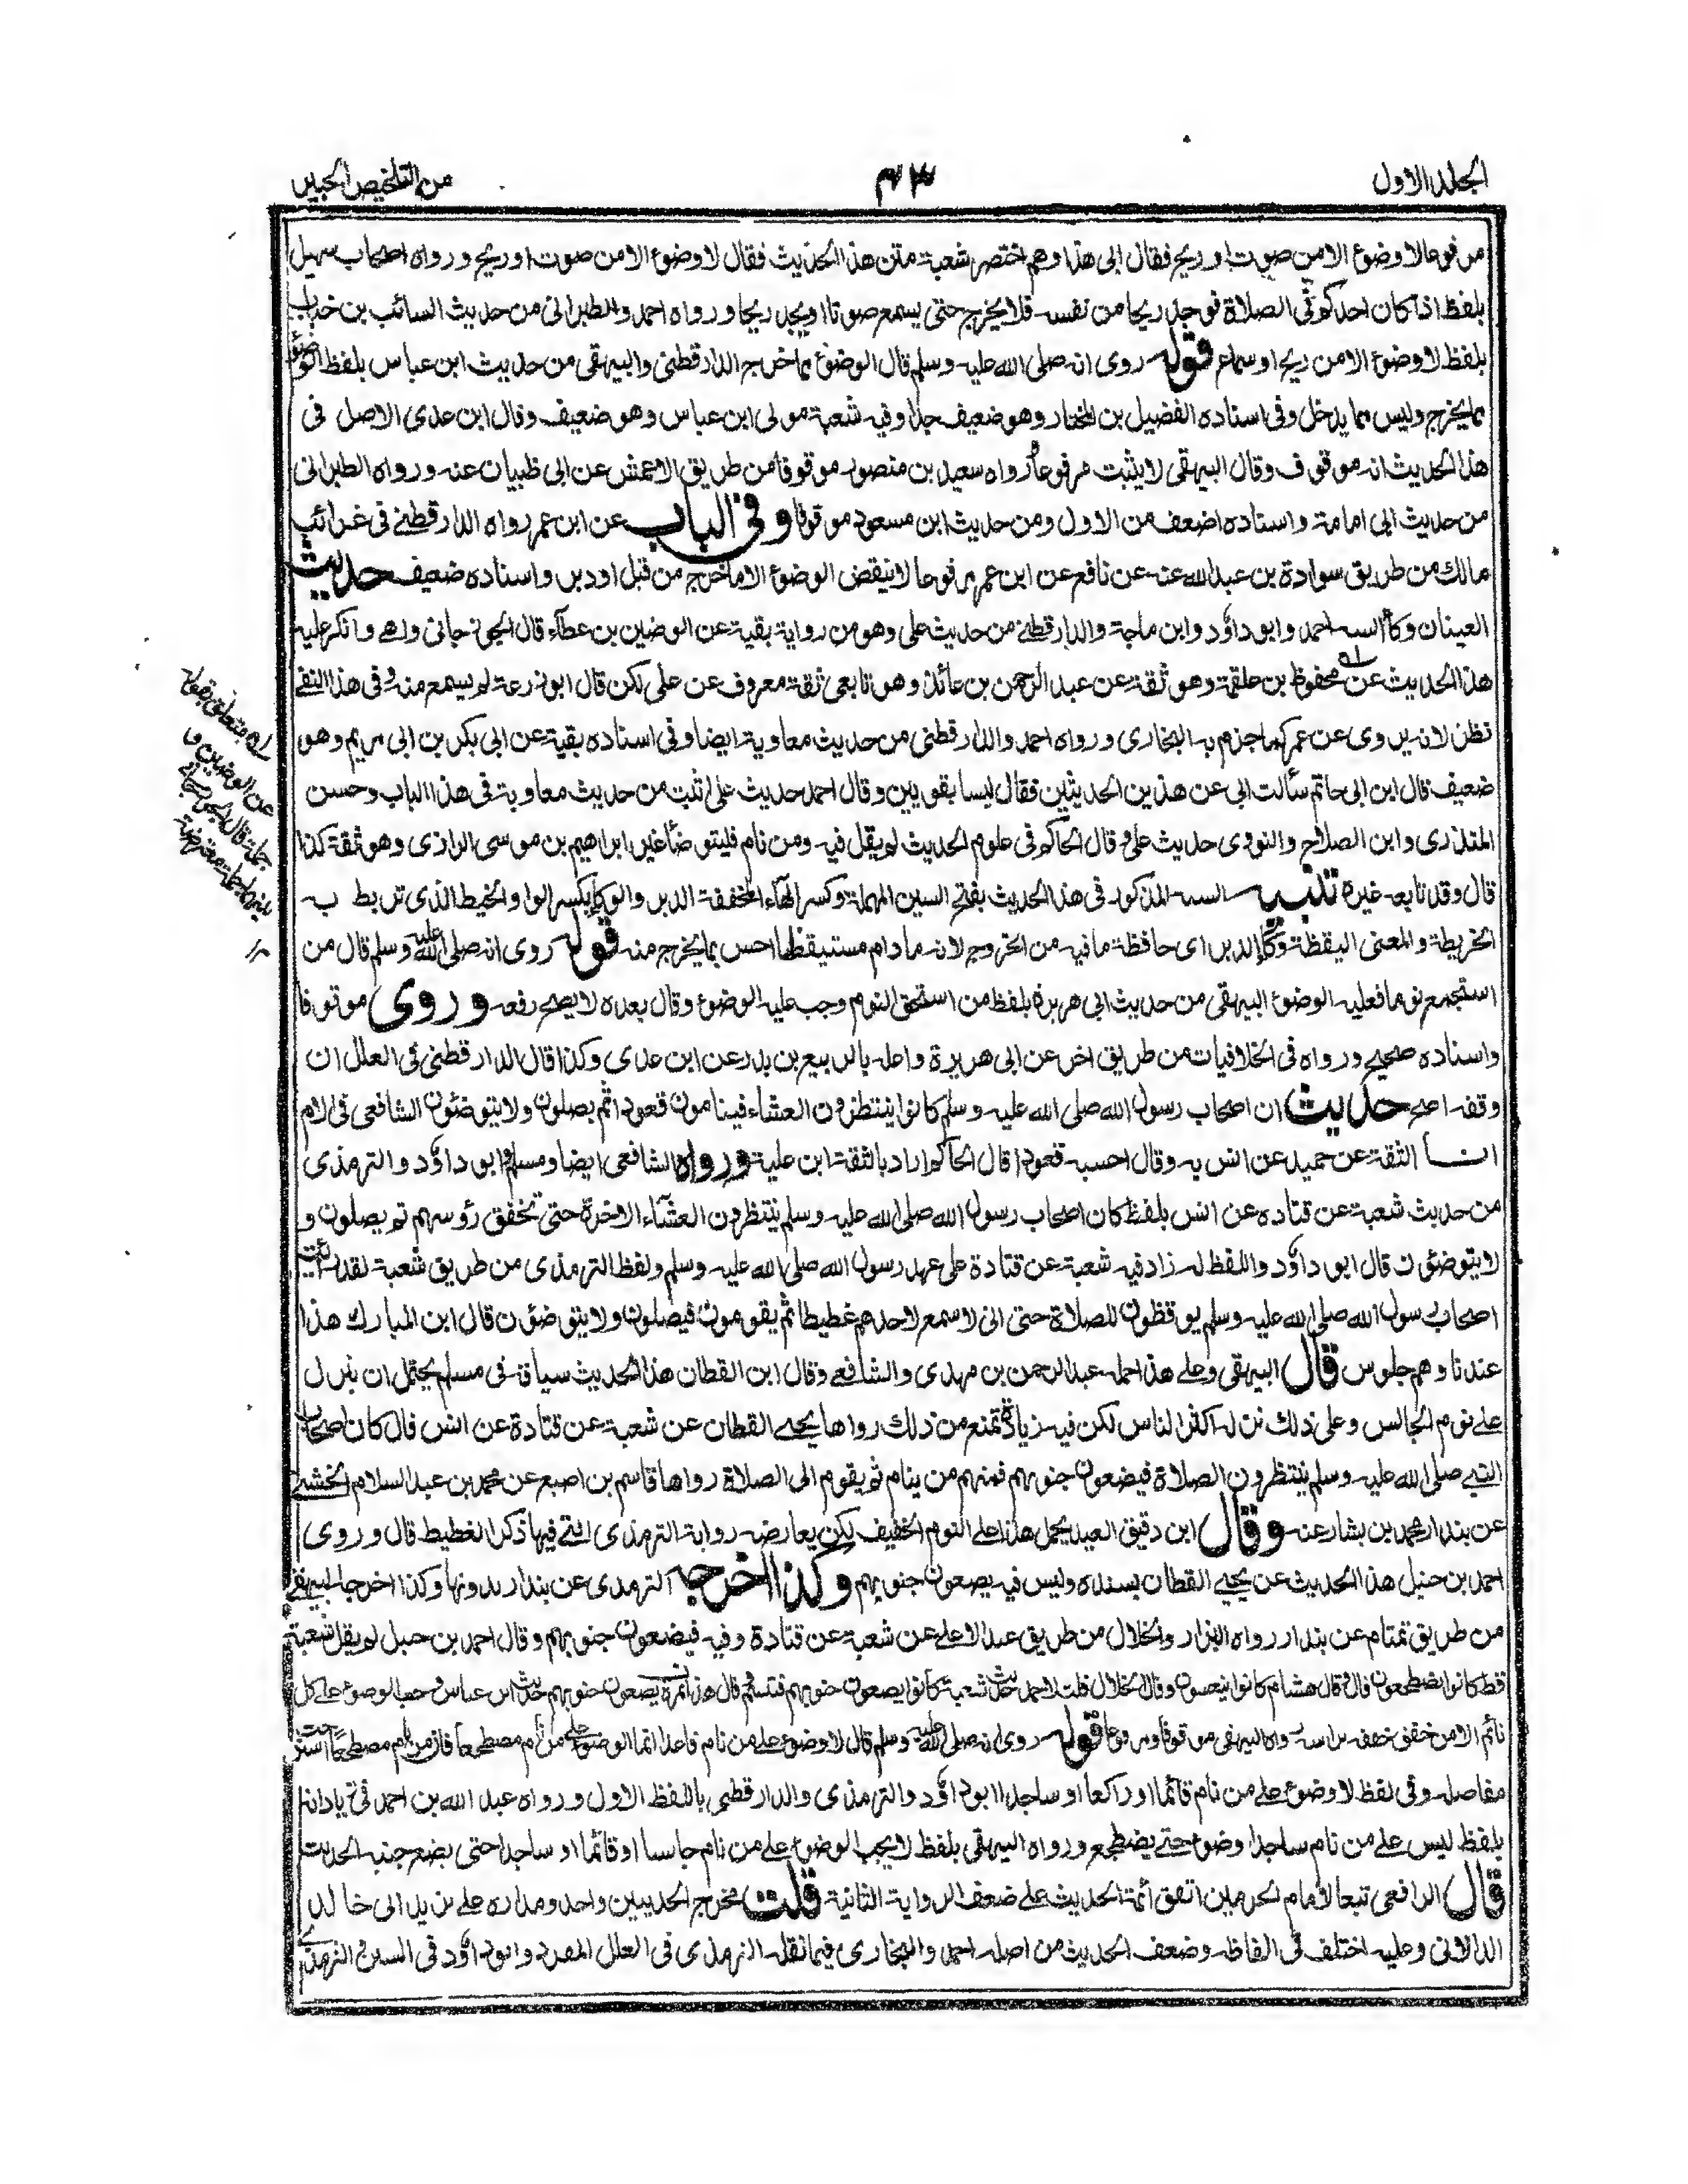 الجلد الاول
٤٣
من التلخيص الحبير
مرفوعا لا وضوء الا من صوت او ريح فقال ابى هذا وهم اختصر شعبة متن هذا الحديث فقال لا وضوء الا من صوت او ريح ورواه اصحاب سهيل
بلفظ اذا كان احدكم فى الصلاة فوجد ريحا من نفسه فلا يخرج حتى يسمع صوتا او يجد ريحا ورواه احمد والطبرانى من حديث السائب بن خباب
بلفظ لا وضوء الا من ريح او سماع قوله روى انه صلى الله عليه وسلم قال الوضوء مما خرج الدارقطنى والبيهقى من حديث ابن عباس بلفظ الوضوء
مما يخرج وليس مما يدخل وفى اسناده الفضيل بن المختار وهو ضعيف جدا وفيه شعبة مولى ابن عباس وهو ضعيف وقال ابن عدى الاصل فى
هذا الحديث انه موقوف وقال البيهقى لا يثبت مرفوعا ورواه سعيد بن منصور موقوفا من طريق الاعمش عن ابى ظبيان عنه ورواه الطبرانى
من حديث ابى امامة واسناده اضعف من الاول ومن حديث ابن مسعود موقوفا وفى الباب عن ابن عمر رواه الدارقطنے فى غرائب
مالك من طريق سوادة بن عبد الله عنه عن نافع عن ابن عمر مرفوعا لا ينقض الوضوء الا ما خرج من قبل او دبر واسناده ضعيف حديث
العينان وكاء السه احمد وابو داؤد وابن ماجة والدارقطنے من حديث على وهو من رواية بقية عن الوضين بن عطاء قال الجوزجانى واهے وانكر عليه
هذا الحديث عن محفوظ بن علقمة وهو ثقة عن عبد الرحمن بن عائذ وهو تابعى ثقة معروف عن على لكن قال ابو زرعة لم يسمع منه وفى هذا النفے
نظر لانه يروى عن عمر كما جزم به البخارى ورواه احمد والدارقطنى من حديث معاوية ايضا وفى اسناده بقية عن ابى بكر بن ابى مريم وهو
ضعيف قال ابن ابى حاتم سألت ابى عن هذين الحديثين فقال ليسا بقويين وقال احمد حديث على اثبت من حديث معاوية فى هذا الباب وحسن
المنذرى وابن الصلاح والنووى حديث على وقال الحاكم فى علوم الحديث لم يقل فيه ومن نام فليتوضأ غير ابراهيم بن موسى الرازى وهو ثقة كذا
قال وقد تابعه غيره تنبيه السه المذكور فى هذا الحديث بفتح السين المهملة وكسر الهاء المخففة الدبر والوكاء بكسر الواو الخيط الذى تربط به
الخريطة والمعنى اليقظة وكاء الدبر اى حافظة ما فيه من الخروج لانه ما دام مستيقظا احس بما يخرج منه قوله روى انه صلى الله عليه وسلم قال من
استجمع نوما فعليه الوضوء البيهقى من حديث ابى هريرة بلفظ من استحق النوم وجب عليه الوضوء وقال بعده لا يصح رفعه وروى موقوفا
واسناده صحيح ورواه فى الخلافيات من طريق اخر عن ابى هريرة واعله بالربيع بن بدر عن ابن عدى وكذا قال الدارقطنى فى العلل ان
وقفه اصح حديث ان اصحاب رسول الله صلى الله عليه وسلم كانوا ينتظرون العشاء فينامون قعودا ثم يصلون ولا يتوضئون الشافعى فى الام
انا الثقة عن حميد عن انس به وقال احسبه قعودا قال الحاكم اراد بالثقة ابن علية ورواه الشافعى ايضا ومسلم وابو داؤد والترمذى
من حديث شعبة عن قتاده عن انس بلفظ كان اصحاب رسول الله صلى الله عليه وسلم ينتظرون العشاء الاخرة حتى تخفق رؤسهم ثم يصلون و
لا يتوضئون قال ابو داؤد واللفظ له زاد فيه شعبة عن قتادة على عهد رسول الله صلى الله عليه وسلم ولفظ الترمذى من طريق شعبة لقد رأيت
اصحاب رسول الله صلى الله عليه وسلم يوقظون للصلاة حتى انى لاسمع لاحدهم غطيطا ثم يقومون فيصلون ولا يتوضئون قال ابن المبارك هذا
عندنا وهم جلوس قال البيهقى وعلے هذا حمله عبد الرحمن بن مهدى والشافعے وقال ابن القطان هذا الحديث سياقه فى مسلم يحتمل ان ينزل
علے نوم الجالس وعلى ذلك نزله اكثر الناس لكن فيه زيادة تمنع من ذلك رواها يحيے القطان عن شعبة عن قتادة عن انس قال كان اصحاب
النبے صلى الله عليه وسلم ينتظرون الصلاة فيضعون جنوبهم فمنهم من ينام ثم يقوم الى الصلاة رواها قاسم بن اصبع عن محمد بن عبد السلام الخشنے
عن بندار محمد بن بشار عنه وقال ابن دقيق العيد يحمل هذا علے النوم الخفيف لكن يعارضه رواية الترمذى التے فيها ذكر الغطيط قال وروى
احمد بن حنبل هذا الحديث عن يحيے القطان بسنده وليس فيه يضعون جنوبهم وكذا اخرجه الترمذى عن بندار بدونها وكذا اخرجه البيهقے
من طريق تمتام عن بندار ورواه البزار والخلال من طريق عبد الاعلے عن شعبة عن قتادة وفيه فيضعون جنوبهم وقال احمد بن حنبل لم يقل شعبة
قط كانوا يضطجعون قال وقال هشام كانوا ينعسون وقال الخلال قلت لاحمد حديث شعبة كانوا يضعون جنوبهم فتبسم وقال هذا بمرة يضعون جنوبهم حديث ابن عباس وجب الوضوء علے كل
نائم الا من خفق خفقة براسه رواه البيهقى موقوفا ومرفوعا قوله روى انه صلى الله عليه وسلم قال لا وضوء علے من نام قاعدا انما الوضوء علے من نام مضطجعا فان من نام مضطجعا استرخت
مفاصله وفى لفظ لا وضوء علے من نام قائما او راكعا او ساجدا ابو داؤد والترمذى والدارقطنى باللفظ الاول ورواه عبد الله بن احمد فى زياداته
بلفظ ليس علے من نام ساجدا وضوء حتے يضطجع ورواه البيهقى بلفظ لا يجب الوضوء علے من نام جالسا او قائما او ساجدا حتى يضع جنبه الحديث
قال الرافعى تبعا لامام الحرمين اتفق ائمة الحديث علے ضعف الرواية الثانية قلت مخرج الحديثين واحد ومداره علے يزيد ابى خالد
الدالانى وعليه اختلف فى الفاظه وضعف الحديث من اصله احمد والبخارى فيما نقله الترمذى فى العلل المفرد وابو داؤد فى السنن والترمذى
له متعلق بقوله
عن الوضين و
جملة قال الجوزجانى
معترضة
١٢